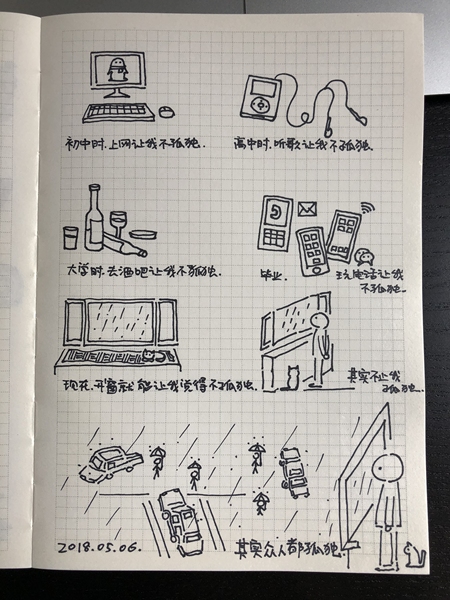 初中时,上网让我不孤独.
高中时,听歌让我不孤独.
大学时,去酒吧让我不孤独.
毕业,玩电话让我
不孤独.
现在,开窗就能让我觉得不孤独.
其实不止我
孤独..
2018.05.06.
其实众人都孤独.